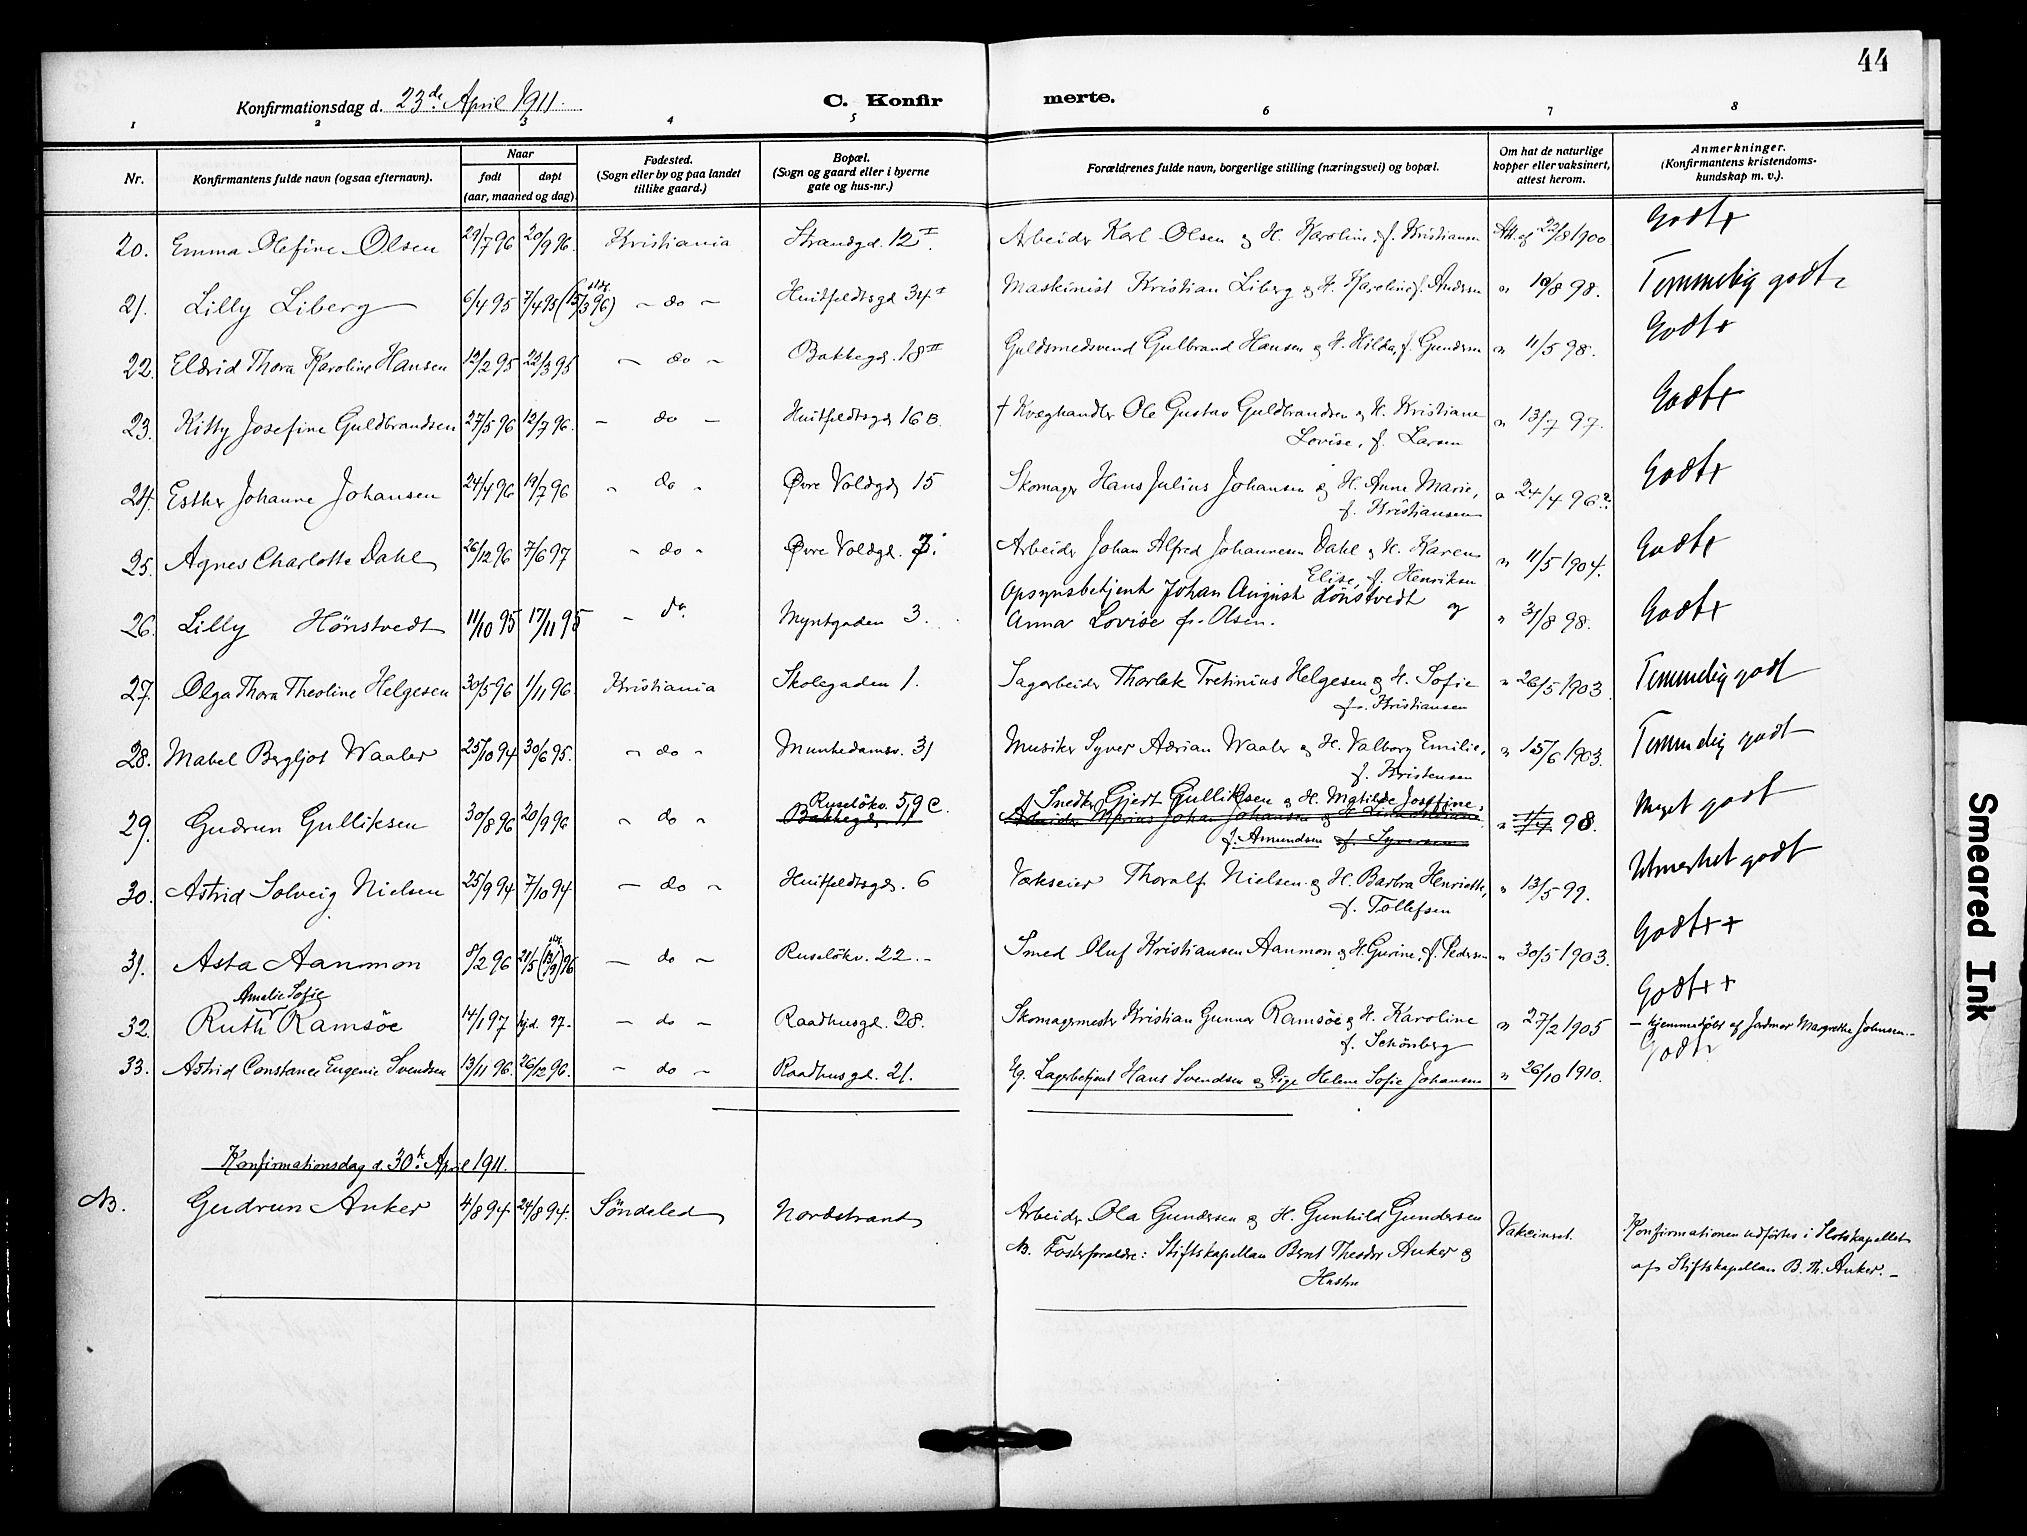 44
Konfirmationsdag d. 23de April 1911.
C. Konfir merte.
1 2 3 4 5 6 7 8
Nr.
Konfirmantens fulde navn (ogsaa efternavn).
Naar
født
døpt
(aar, maaned og dag)
Fødested.
(Sogn eller by og paa landet
tillike gaard.)
Bopæl.
(Sogn og gaard eller i byerne
gate og hus-nr.)
Forældrenes fulde navn, borgerlige stilling (næringsvei) og bopæl.
Om hat de naturlige
kopper eller vaksinert,
attest herom.
Anmerkninger.
(Konfirmantens kristendoms-
kundskap m. v.).
20. Emma Olefine Olsen 29/7 96 20/9 96. Kristiania Strandgd. 12 I. Arbeider Karl Olsen og H. Karoline, f. Kristiansen Att. af 22/8 1900. Godt+
21. Lilly Liberg 6/4 95 7/4 95 (15/3 96) - do - Huitfeldtsgd 34 I Maskinist Kristian Liberg og H. Karoline f. Andersen " 10/8 98. Temmelig godt
22. Eldrid Thora Karoline Hansen 12/2 95 22/3 95 - do - Bakkegd. 18 II Guldsmedsvend Gulbrand Hansen og H. Hilda, f. Gundersen " 11/5 98. Godt+
23. Kitty Josefine Guldbrandsen 27/5 96 12/7 96. - do - Huitfeldtsgd 16 B. † Kvæghandler Ole Gustav Guldbrandsen og H. Kristiane " 13/7 97. Godt+
Lovise, f. Larsen
24. Esther Johanne Johansen 24/4 96 19/7 96 " do " Øvre Voldgd 15 Skomager Hans Julius Johansen og H. Anne Marie, " 24/4 96? Godt+
f. Kristiansen
25. Agnes Charlotte Dahl 26/12 96 7/6 97 " do " Øvre Voldgd. 7. Arbeider Johan Alfred Johannesen Dahl og H. Karen " 11/5 1904. Godt+
Elise, f. Henriksen
26. Lilly Hönstvedt 11/10 95 17/11 95 - do. Myntgaden 3. Opsynsbetjent Johan August Hönstvedt og " 31/8 98. Godt+
Anna Lovise f. Olsen.
27. Olga Thora Theoline Helgesen 30/5 96 1/11 96. Kristiania Skolegaden 1. Sagarbeider Thorlak Tretinius Helgesen og H. Sofie " 26/5 1903. Temmelig godt
f. Kristiansen
28. Mabel Bergljot Waaler 25/10 94 30/6 95. " do " Munkedamsv. 31 Musiker Syver Adrian Waaler og H. Valborg Emilie, " 15/6 1903. Temmelig godt
f. Kristensen
29. Gudrun Gulliksen 30/8 96 20/9 96 " do " Ruselökv. 59 C. Snedker Gjert Gulliksen og H. Matilde Josefine, " 98. Meget godt
Bakkegd Arbeider Marius Johan Johansen og H.
f. Amundsen f. Syversen
30. Astrid Solveig Nielsen 25/9 94 7/10 94 - do " Huitfeldtsgd. 6 Værkseier Thoralf Nielsen og H. Barbra Henriette, " 13/5 99. Utmerket godt
f. Tollefsen
31. Asta Aanmon 8/2 96 21/5 (13/9) 96 - do - Ruselökv. 22. - Smed Oluf Kristiansen Aanmon og H. Gurine, f. Pedersen " 30/5 1903. Godt++
Amalie Sofie
32. Ruth Ramsöe 14/1 97 hjd. 97. - do - Raadhusgd. 28. Skomagermester Kristian Gunnar Ramsöe og H. Karoline " 27/2 1905 Godt++
f. Schönberg
- hjemmedøbt af Jordmor Magrethe Johnsen. -
33. Astrid Constance Eugenie Svendsen 13/11 96. 26/12 96. - do - Raadhusgd. 21. Ug. Lagerbetjent Hans Svendsen og Pige Helene Sofie Johansen " 26/10 1910. Godt
Konfirmationsdag d. 30te April 1911.
NB. Gudrun Anker 4/8 94 24/8 94. Söndeled Nordstrand Arbeider Ola Gundersen og H. Gunhild Gundersen Vakcineret. Konfirmationen udförtes i Slotskapellet
NB. Fosterforældre: Stiftskapellan Bernt Theodor Anker og af Stiftskapellan B. Th. Anker. -
Hustru
Smeared Ink